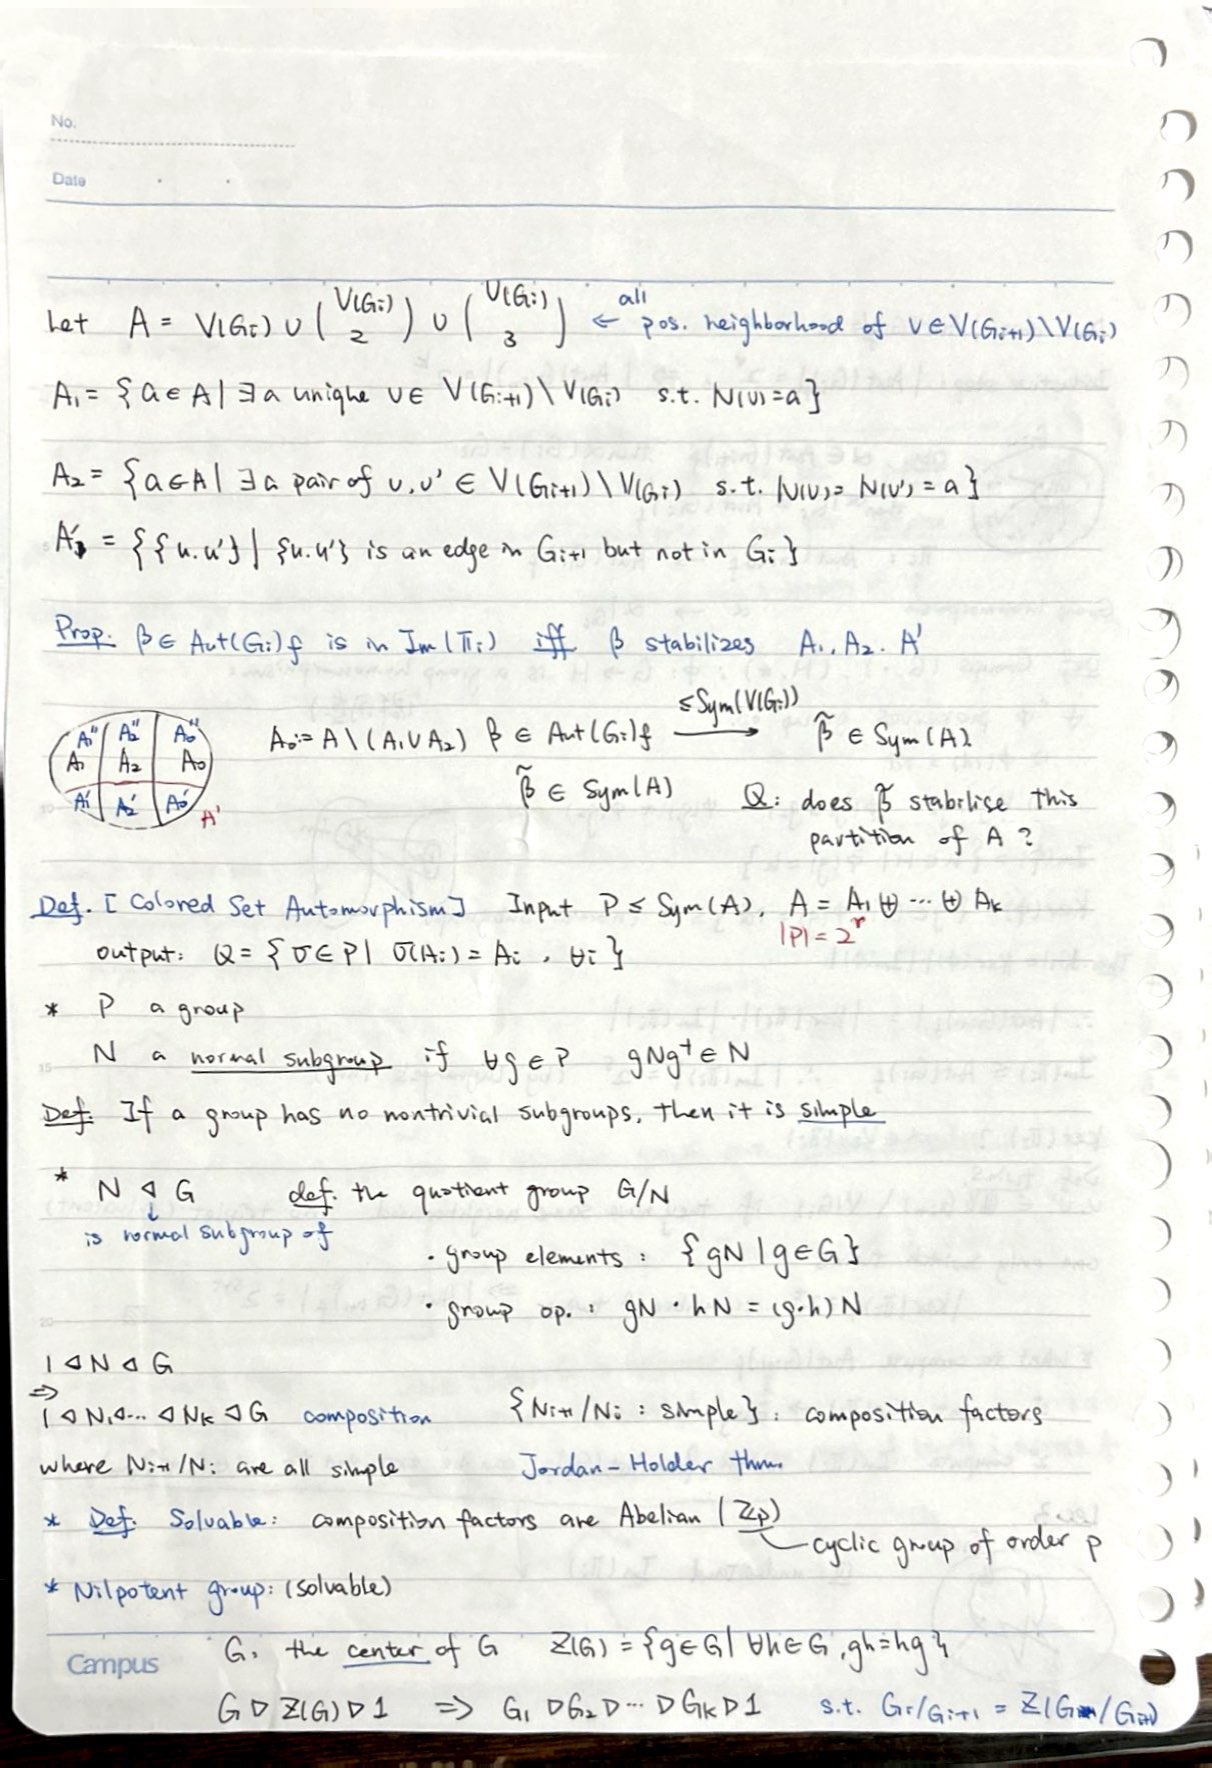 No.
Date
Let A = V(Gi) ∪ (V(Gi) 2) ∪ (V(Gi) 3) ← all pos. neighborhood of v ∈ V(Gi+1) \ V(Gi)
A₁ = {a ∈ A | ∃ a unique v ∈ V(Gi+1) \ V(Gi) s.t. N(v) = a}
A₂ = {a ∈ A | ∃ a pair of v, v' ∈ V(Gi+1) \ V(Gi) s.t. N(v) = N(v') = a}
A' = {{u.u'} | {u.u'} is an edge in Gi+1 but not in Gi}
Prop. β ∈ Aut(Gi)f is in Im(πi) iff β stabilizes A₁. A₂. A'
A₁'' A₂'' A₀''
A₁ A₂ A₀
A₁' A₂' A₀' A'
A₀ := A \ (A₁ ∪ A₂) β ∈ Aut(Gi)f ≤ Sym(V(Gi)) → β̃ ∈ Sym(A)
β̃ ∈ Sym(A) Q: does β̃ stabilise this
partition of A?
Def. [Colored Set Automorphism] Input P ≤ Sym(A), A = A₁ ⊎ ... ⊎ Ak
|P| = 2^r
output: Q = {σ ∈ P | σ(Ai) = Ai, ∀i}
* P a group
N a normal subgroup if ∀g ∈ P gNg⁻¹ ∈ N
Def. If a group has no nontrivial subgroups, then it is simple
* N ◁ G def. the quotient group G/N
↓
is normal subgroup of
· group elements: {gN | g ∈ G}
· group op.: gN · hN = (g·h) N
1 ◁ N ◁ G
⇒
1 ◁ N₁ ◁ ... ◁ Nk ◁ G composition {Ni+1/Ni : simple} : composition factors
where Ni+1/Ni are all simple Jordan-Holder thm.
* Def. Solvable: composition factors are Abelian (Zp)
cyclic group of order p
* Nilpotent group: (solvable)
G, the center of G Z(G) = {g ∈ G | ∀h ∈ G, gh = hg}
Campus
G ▷ Z(G) ▷ 1 ⇒ G₁ ▷ G₂ ▷ ... ▷ Gk ▷ 1 s.t. Gi/Gi+1 = Z(G /Gi+1)